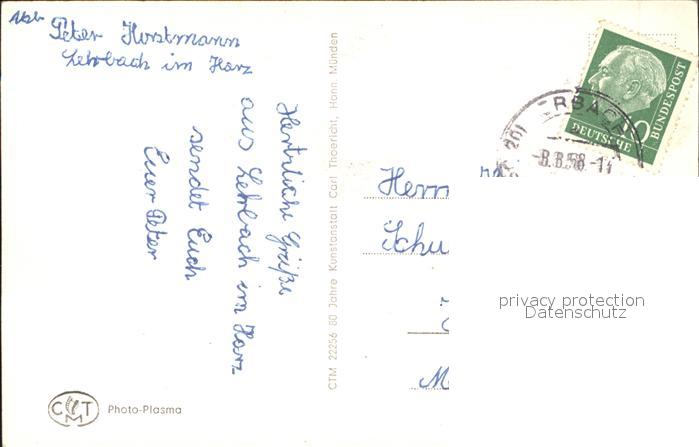 Abs.
Peter Horstmann
Lerbach im Harz
Herzliche Grüße
aus Lerbach im Harz
sendet Euch
Euer Peter
CTM 22256 80 Jahre Kunstanstalt Carl Thoericht, Hann. Münden
DEUTSCHE
BUNDESPOST
ERBACH
8.8.58-11
Herrn
Schu
M
privacy protection
Datenschutz
CTM
Photo-Plasma